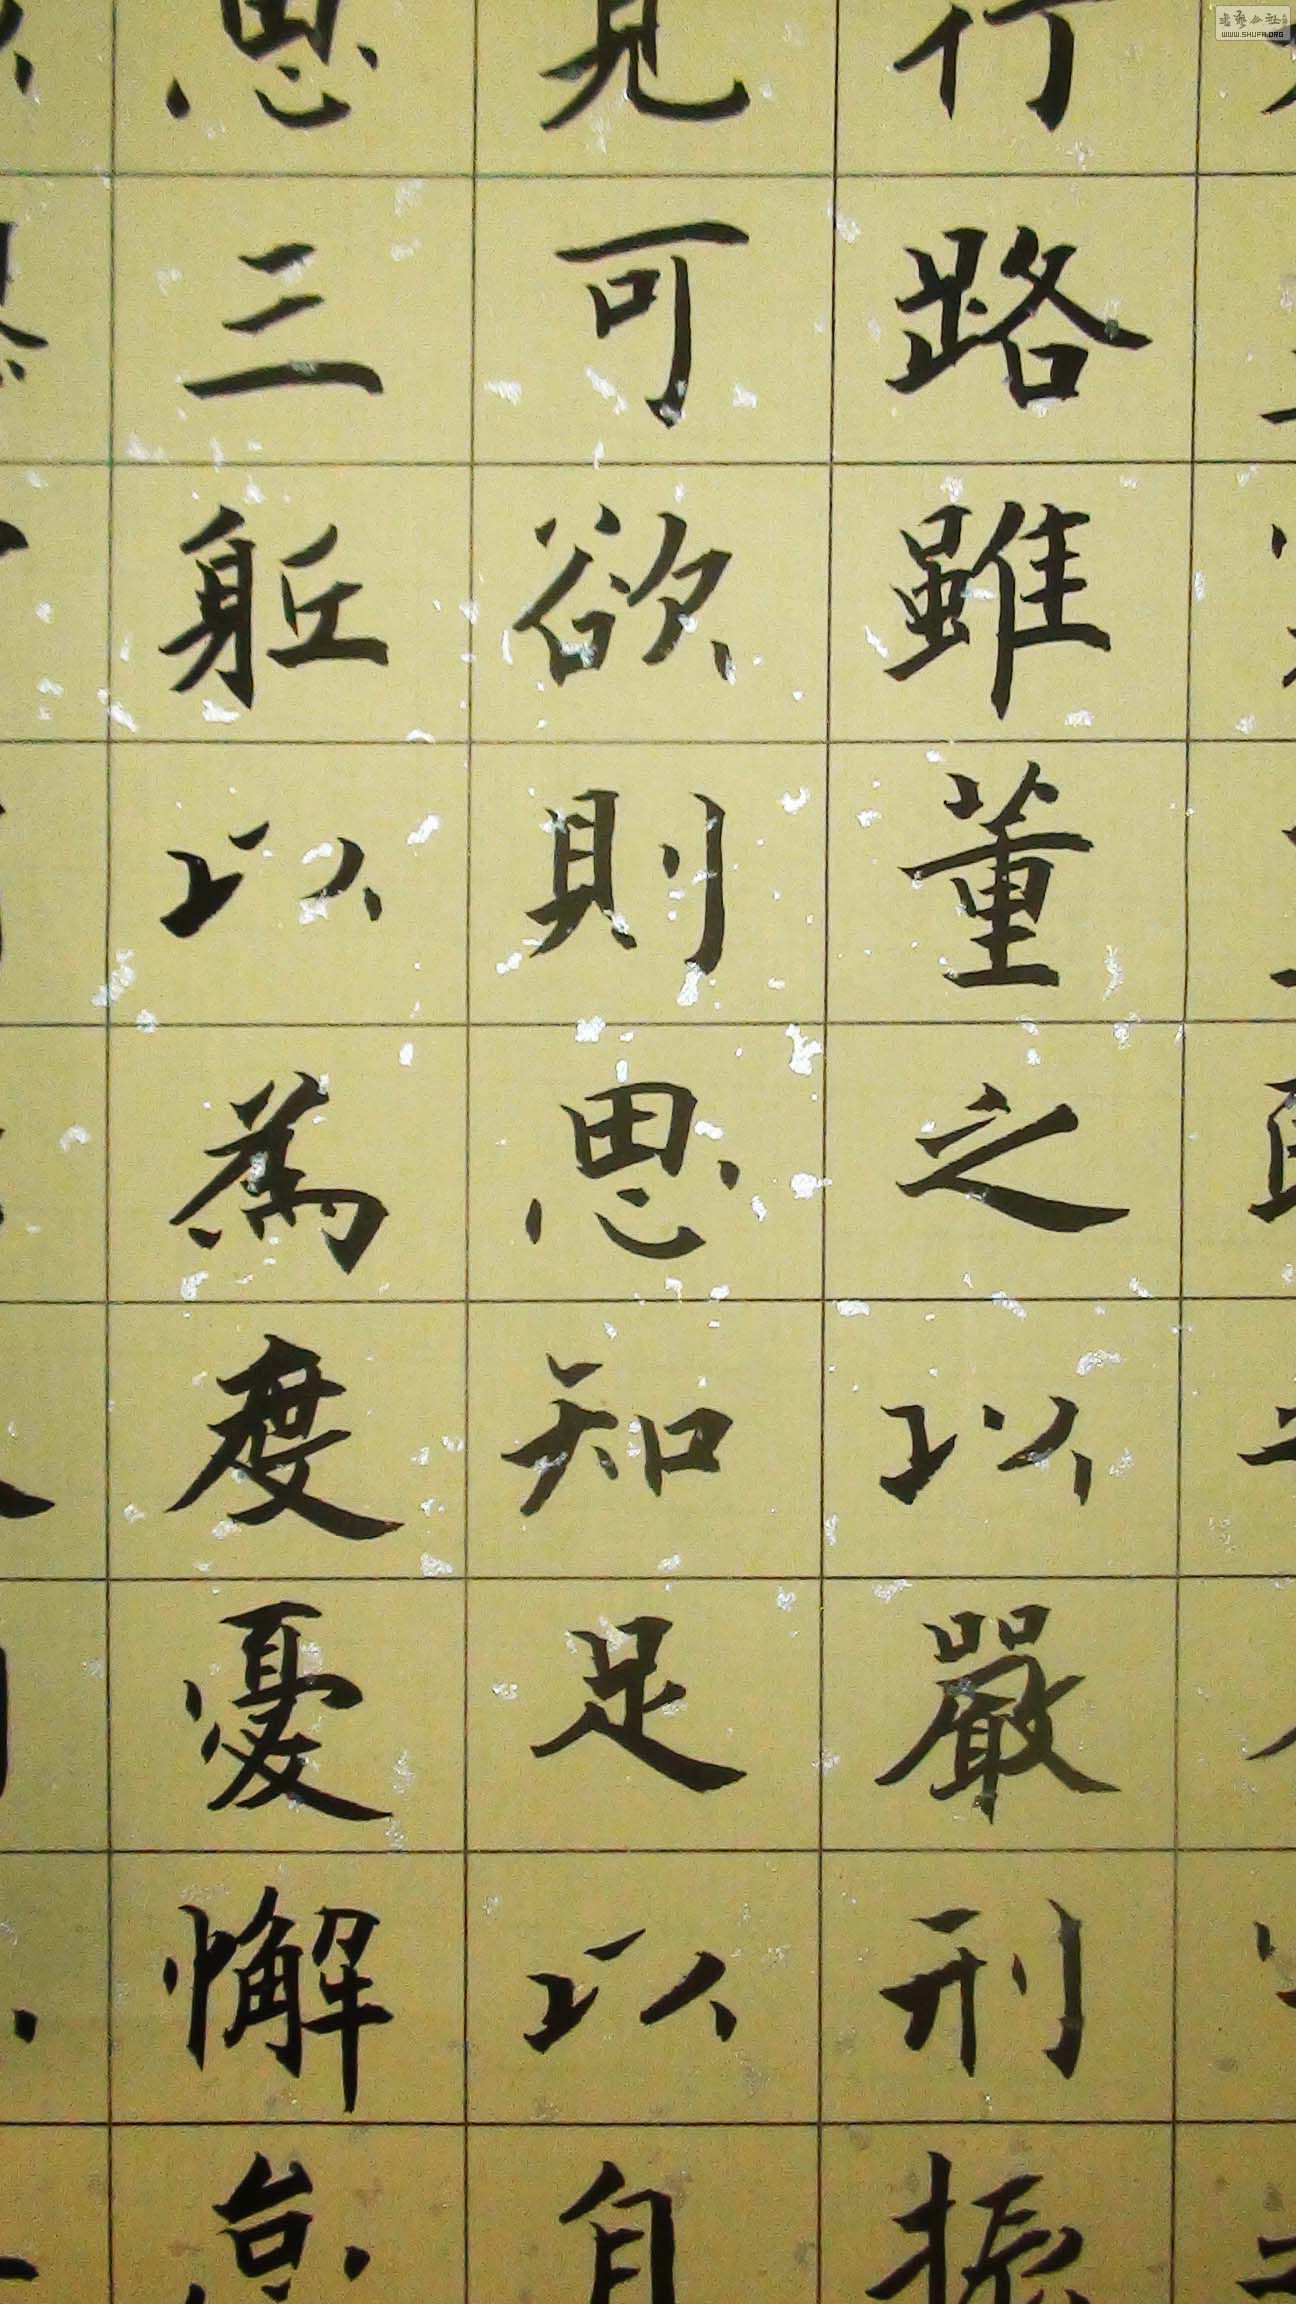 行路雖董之以嚴刑振
見可欲則思知足以自
思三駈以為度憂懈怠
书艺公社
WWW.SHUFA.ORG